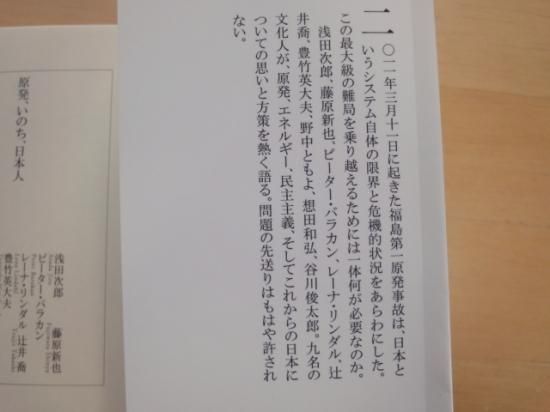 二〇一一年三月十一日に起きた福島第一原発事故は、日本と
いうシステム自体の限界と危機的状況をあらわにした。
この最大級の難局を乗り越えるためには一体何が必要なのか。
浅田次郎、藤原新也、ピーター・バラカン、レーナ・リンダル、辻
井喬、豊竹英大夫、野中ともよ、想田和弘、谷川俊太郎。九名の
文化人が、原発、エネルギー、民主主義、そしてこれからの日本に
ついての思いと方策を熱く語る。問題の先送りはもはや許され
ない。
原発、いのち、日本人
浅田次郎 藤原新也
ピーター・バラカン
レーナ・リンダル 辻井喬
豊竹英大夫